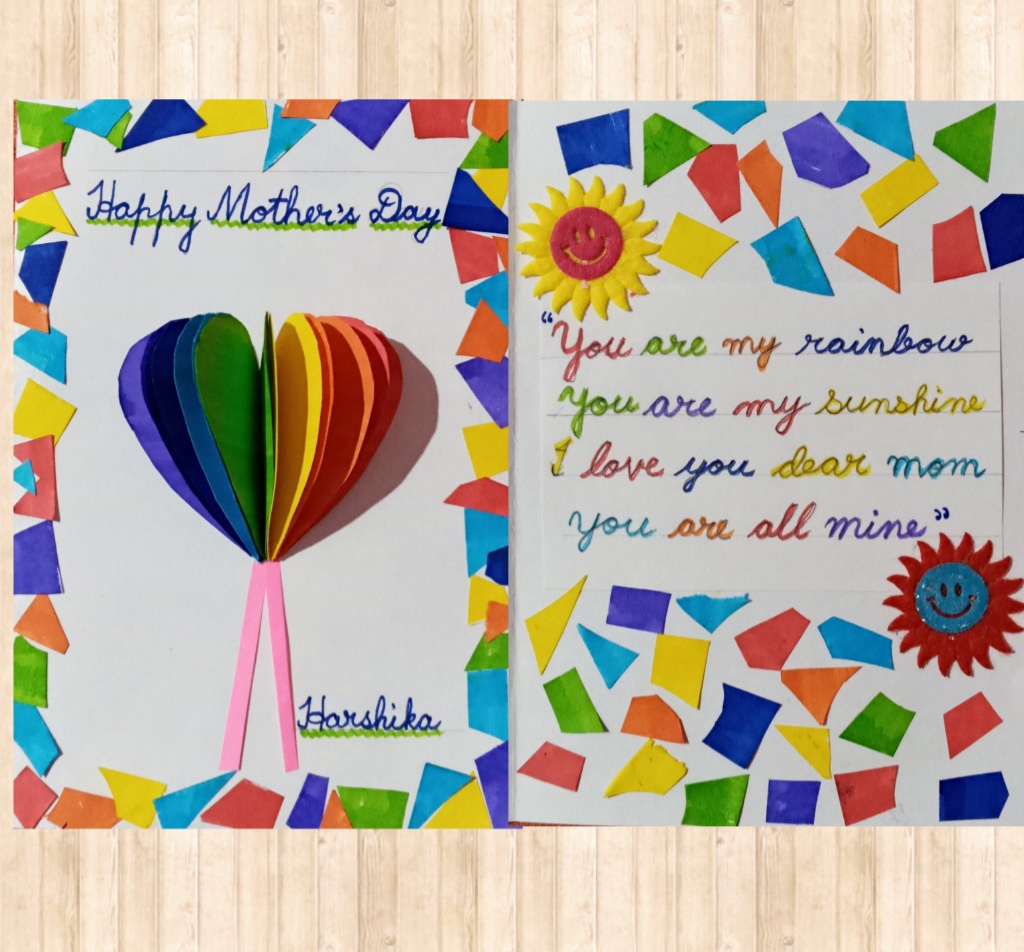 Happy Mother's Day
Harshika
"You are my rainbow
You are my sunshine
I love you dear mom
You are all mine"